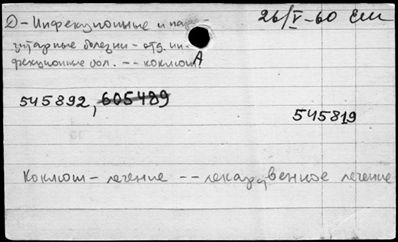 D - Инфекционные и пара- 26/V-60 ЕМ
зитарные болезни - отд. ин-
фекционные бол. -- коклюш А
545892, 605489
545819
Коклюш - лечение -- лекарственное лечение